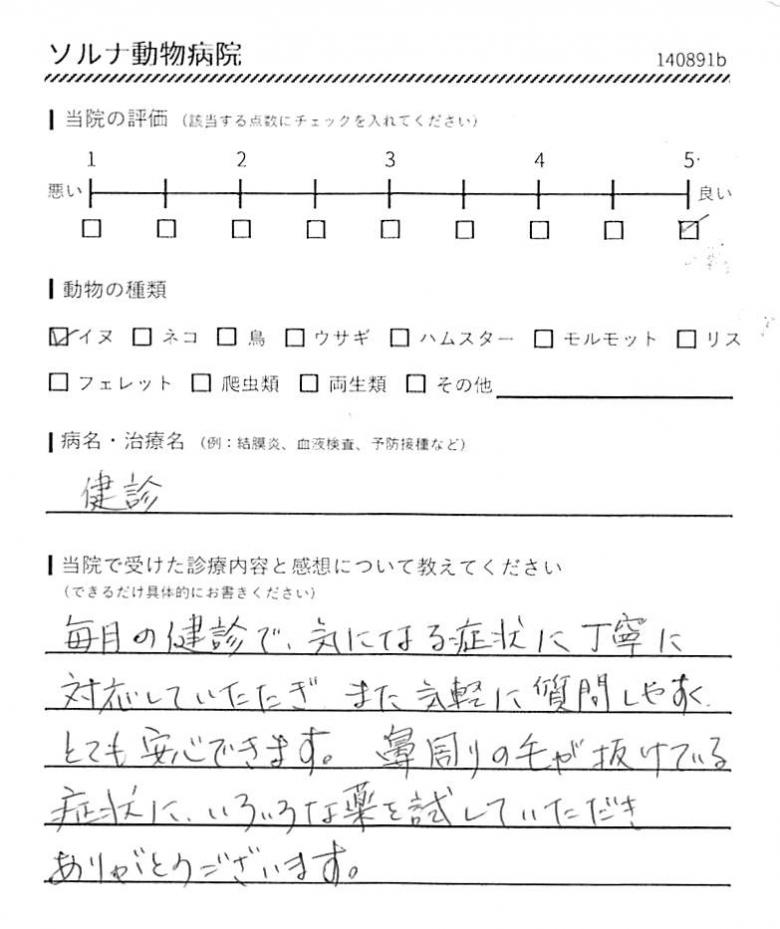 ソルナ動物病院
140891b
当院の評価 (該当する点数にチェックを入れてください)
1 2 3 4 5
悪い 良い
動物の種類
イヌ ネコ 鳥 ウサギ ハムスター モルモット リス
フェレット 爬虫類 両生類 その他
病名・治療名 (例:結膜炎、血液検査、予防接種など)
健診
当院で受けた診療内容と感想について教えてください
(できるだけ具体的にお書きください)
毎月の健診で、気になる症状に丁寧に
対応していただき また気軽に質問しやすく、
とても安心できます。 鼻周りの毛が抜けている
症状に、いろいろな薬を試していただき
ありがとうございます。